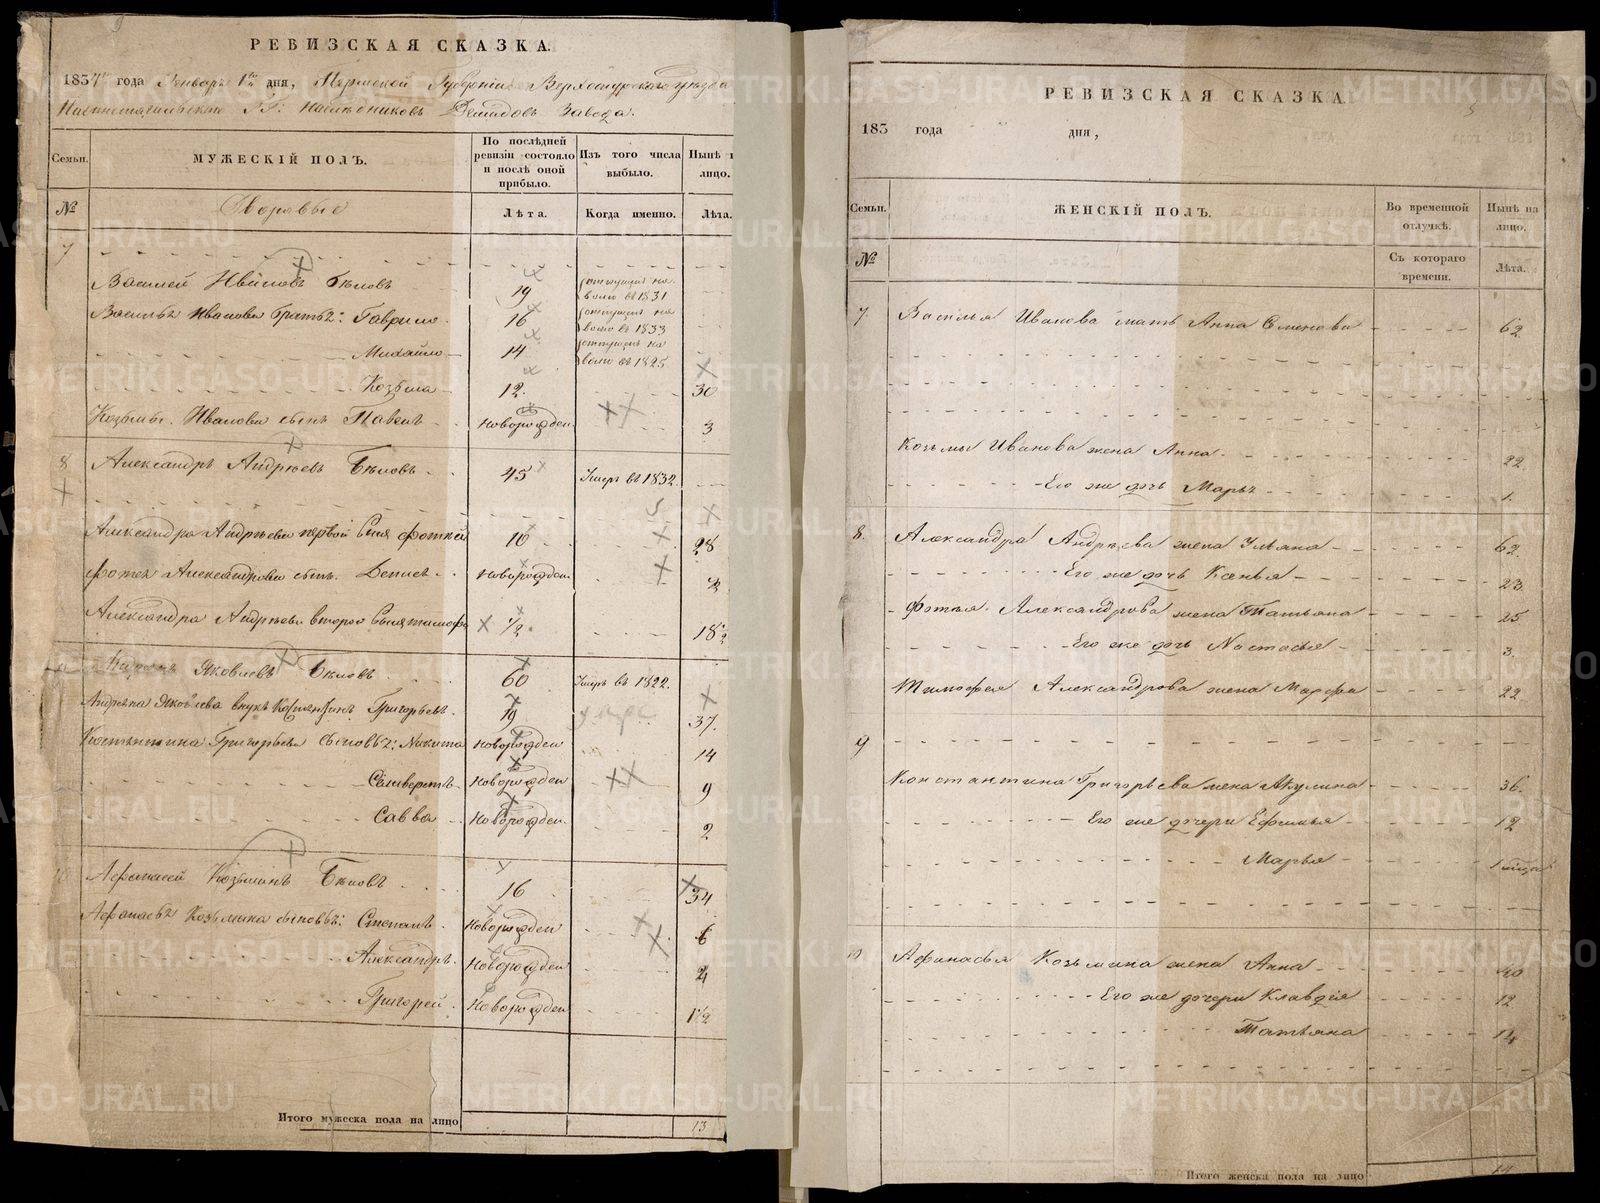 РЕВИЗСКАЯ СКАЗКА.
1834 года Генваря 1го дня, Пермской Губернии Верхотурского уезда
Нижнетагильского ГГ: Наследниковъ Демидовъ Завода.
Семьи. МУЖЕСКІЙ ПОЛЪ. По послѣдней ревизіи состояло и послѣ оной прибыло. Изъ того числа выбыло. Нынѣ лицо.
№ Дворовые Лѣта. Когда именно. Лѣта.
7
Василей Ивановъ Бѣловъ 19 отпущенъ на волю въ 1831
Василья Иванова братья: Гаврило 16 отпущенъ на волю въ 1833
Михайло 14 отпущенъ на волю въ 1825
Козьма 12. 30
Козьмы Иванова сынъ Павелъ новорожден. 3
8 Александръ Андреевъ Бѣловъ 45 Умеръ въ 1832.
Александра Андрѣева первой сынъ Фотей 10 28
Фотея Александрова сынъ Денисъ новорожден. 2
Александра Андрѣева второй сынъ Тимофей 1/2 18 1/2
Яковлевъ Бѣловъ 60 Умеръ въ 1822.
Яковлева внукъ Константинъ Григорьевъ 19 37.
Костянтина Григорьева сыновья: Никита новорожден 14
Селиверстъ новорожден 9
Савва новорожден. 2
10 Афанасей Козьминъ Бѣловъ 16 34
Афанасья Козьмина сыновья: Степанъ новорожден 6
Александръ новорожден 4
Григорей новорожден 1 1/2
Итого мужеска пола на лицо 13
РЕВИЗСКАЯ СКАЗКА
183 года дня,
Семьи. ЖЕНСКІЙ ПОЛЪ. Во временной отлучкѣ. Нынѣ на лицо.
№ Съ котораго времени. Лѣта.
7. Василья Иванова мать Анна Семенова 62.
Козьмы Иванова жена Анна 22
Его же дочь Марья 1.
8. Александра Андрѣева жена Ульяна 62.
Его же дочь Ксенья 23.
Фотья Александрова жена Татьяна 25
Его же дочь Настасья 3.
Тимофея Александрова жена Марфа 22
9
Константина Григорьева жена Акулина 36.
Его же дочери Ефимья 12
Марья 1
Афанасья Козьмина жена Анна 40
Его же дочери Клавдія 12
Татьяна 14
Итого женска пола на лицо 14